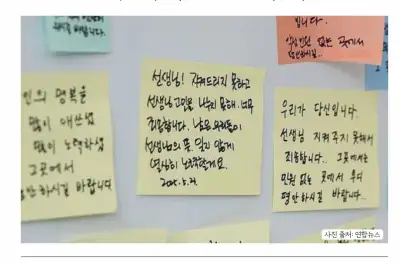 니다.
없는 곳에서
선생님! 지켜드리지 못하고
선생님 고민을 나누지 못해 너무
죄송합니다. 남은
선생님의 뜻 잊지 않게
열심히 노력할게요.
인의 명복을
많이 애쓰셨
많이 노력하셨
그곳에서
평안하시길 바랍니다
우리가 당신입니다.
선생님 지켜주지 못해서
죄송합니다.. 그곳에서는
민원 없는 곳에서 부디
평안하시길 바랍니다..
사진 출처: 연합뉴스